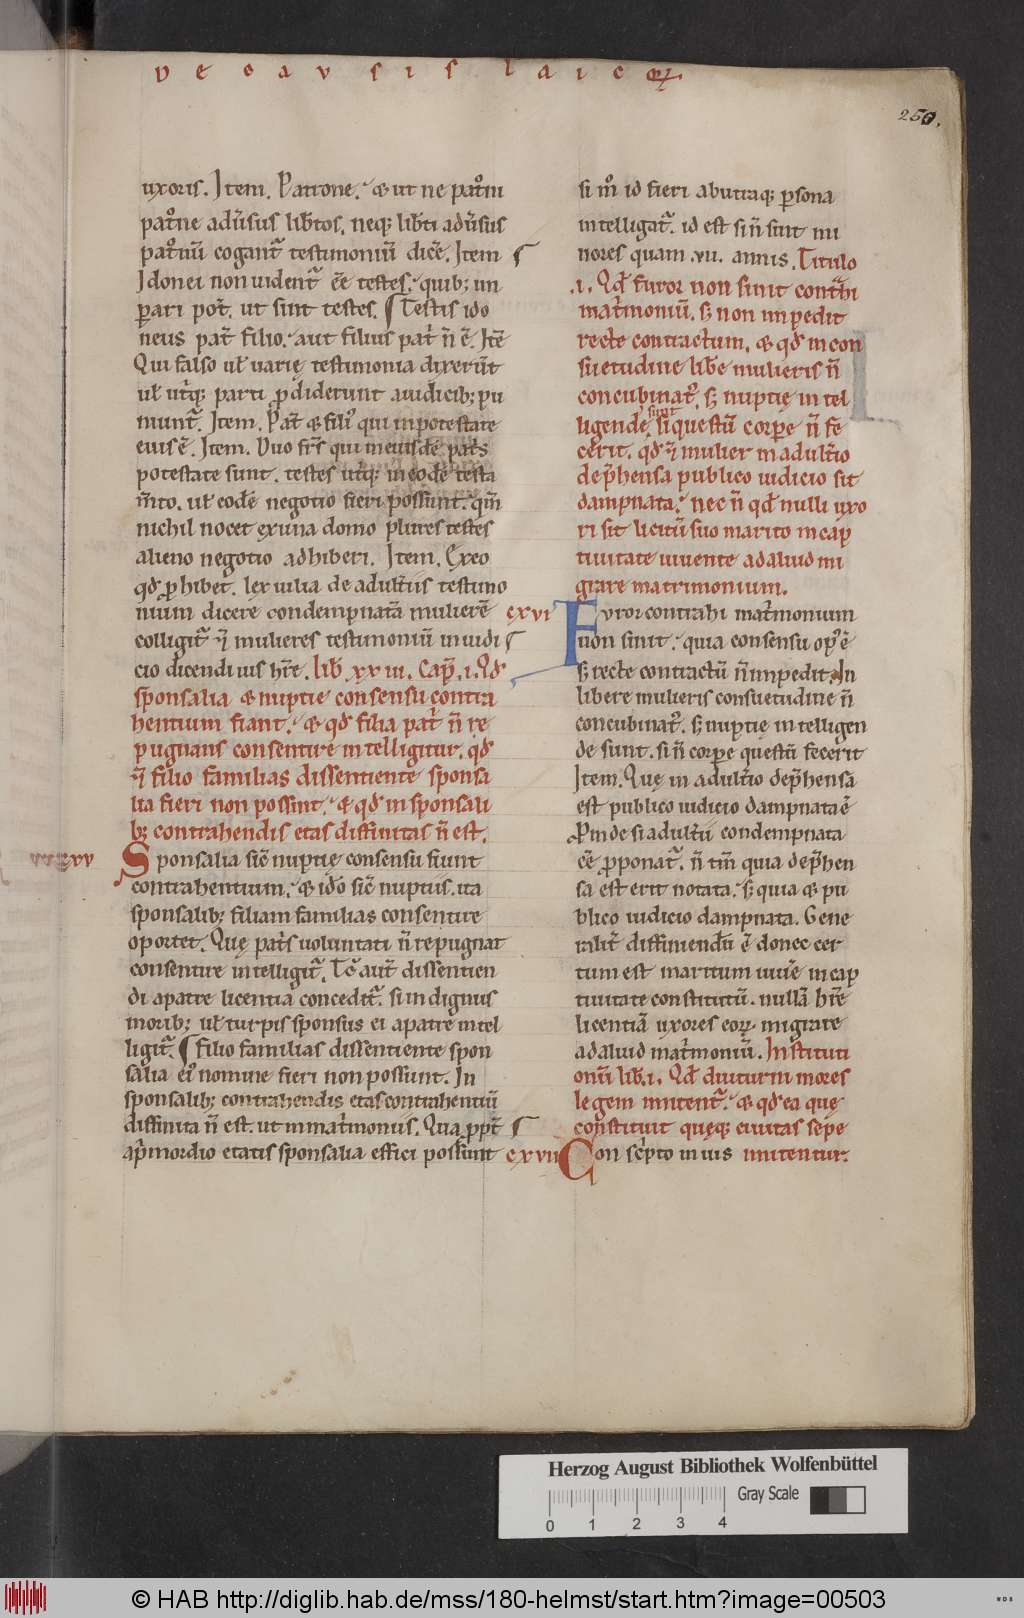 De cavsis laicoꝝ
250.
uxoris. Item. Patrone. & ut ne patͦni
patͦne adu̅sus lib̅tos. neq; lib̅ti adu̅sus
patͦnu̅ cogant᷑ testimoniu̅ dice̅. Item
Idonei non uident᷑ ee̅ testes. quib; im
ꝑari pot̅. ut sint testes. ¶ Testis ido
neus pat̅ filio. aut filius pat̅i n̅ e̅. Ite̅
Qui falso ul̅ uarię testimonia dixer̅t
ul̅ ut̅q; parti ꝓdiderunt a iudicib; pu
niunt᷑. Item. Pat̅ & fili᷒ qui in potestate
eius e̅. Item. Duo fr̅s qui in eiusde̅ pat̅s
potestate sunt. testes ut̅q; in eode̅ testa
m̅to. ul̅ eode̅ negotio fieri possunt. qm̅
nichil nocet ex una domo plures testes
alieno negotio adhiberi. Item. Ex eo
qd̅ ꝓhibet. lex iulia de adult̅iis testimo
nium dicere condempnata̅ muliere̅
colligit᷑ & mulieres testimoniu̅ in iudi
cio dicendi ius hr̅e. Lib̅. xxiii. Cap̅. i. Qd̅
sponsalia & nuptie consensu contra
hentium fiant. & qd̅ filia pat̅i n̅ re
pugnans consentire intelligitur. qd̅
& filio familias dissentiente sponsa
lia fieri non possint. & qd̅ in sponsali
b; contrahendis etas diffinitas n̅ est.
Sponsalia sic̅ nuptie consensu fiunt
contrahentium. & id̅o sic̅ nuptiis. ita
sponsalib; filiam familias consentire
oportet. Quę pat̅s uoluntati n̅ repugnat
consentire intelligit᷑. Tc̅ aut̅ dissentien
di a patre licentia concedit᷑. si indignus
morib; ul̅ turpis sponsus ei a patre intel
ligit᷑. ¶ Filio familias dissentiente spon
salia ei᷒ nomine fieri non possunt. In
sponsalib; contrahendis etas contrahentiu̅
diffinita n̅ est. ut in mat̅imoniis. Qua ꝓpt̅
a p̅mordio etatis sponsalia effici possunt
cxv
si m̊ id fieri ab utraq; ꝑsona
intelligat᷑. id est si n̅ sint mi
nores quam .vii. annis. Titulo
.i. Qd̅ furor non sinit cont̅hi
mat̅imoniu̅. s; non impedit
recte contractum. & qd̅ in con
suetudine lib̅e mulieris n̅
concubinat᷒. s; nuptię intel
ligende sint si questu̅ corꝑe n̅ fe
cerit. qd̅ & mulier in adult̅io
dep̅hensa publico iudicio sit
dampnata. nec n̅ qd̅ nulli uxo
ri sit licitu̅ suo marito in cap
tiuitate uiuente ad aliud mi
grare matrimonium.
cxvi Furor contrahi mat̅imonium
non sinit. quia consensu op᷒ e̅
s; recte contractu̅ n̅ impedit. In
libere mulieris consuetudine n̅
concubinat᷒. s; nuptię intelligen
de sunt. si n̅ corꝑe questu̅ fecerit
Item. Quę in adult̅io dep̅hensa
est publico iudicio dampnata e̅
Proinde si adult̅ii condempnata
ee̅ ꝓponat᷑. n̅ tm̅ quia dep̅hen
sa est erit notata. s; quia & pu
blico iudicio dampnata. Gene
ralit̅ diffiniendu̅ e̅ donec cer
tum est maritum uiue̅ in cap
tiuitate constitutu̅. nulla̅ hr̅e
licentia̅ uxores eoꝝ migrare
ad aliud mat̅imoniu̅. Instituti
onu̅ lib̅. i. Qd̅ diuturni mores
legem imitent᷑. & qd̅ ea quę
constituit quęq; ciuitas sepe
cxvii Con sc̅pto iu ius imitentur.
Herzog August Bibliothek Wolfenbüttel
Gray Scale
0 1 2 3 4
© HAB http://diglib.hab.de/mss/180-helmst/start.htm?image=00503